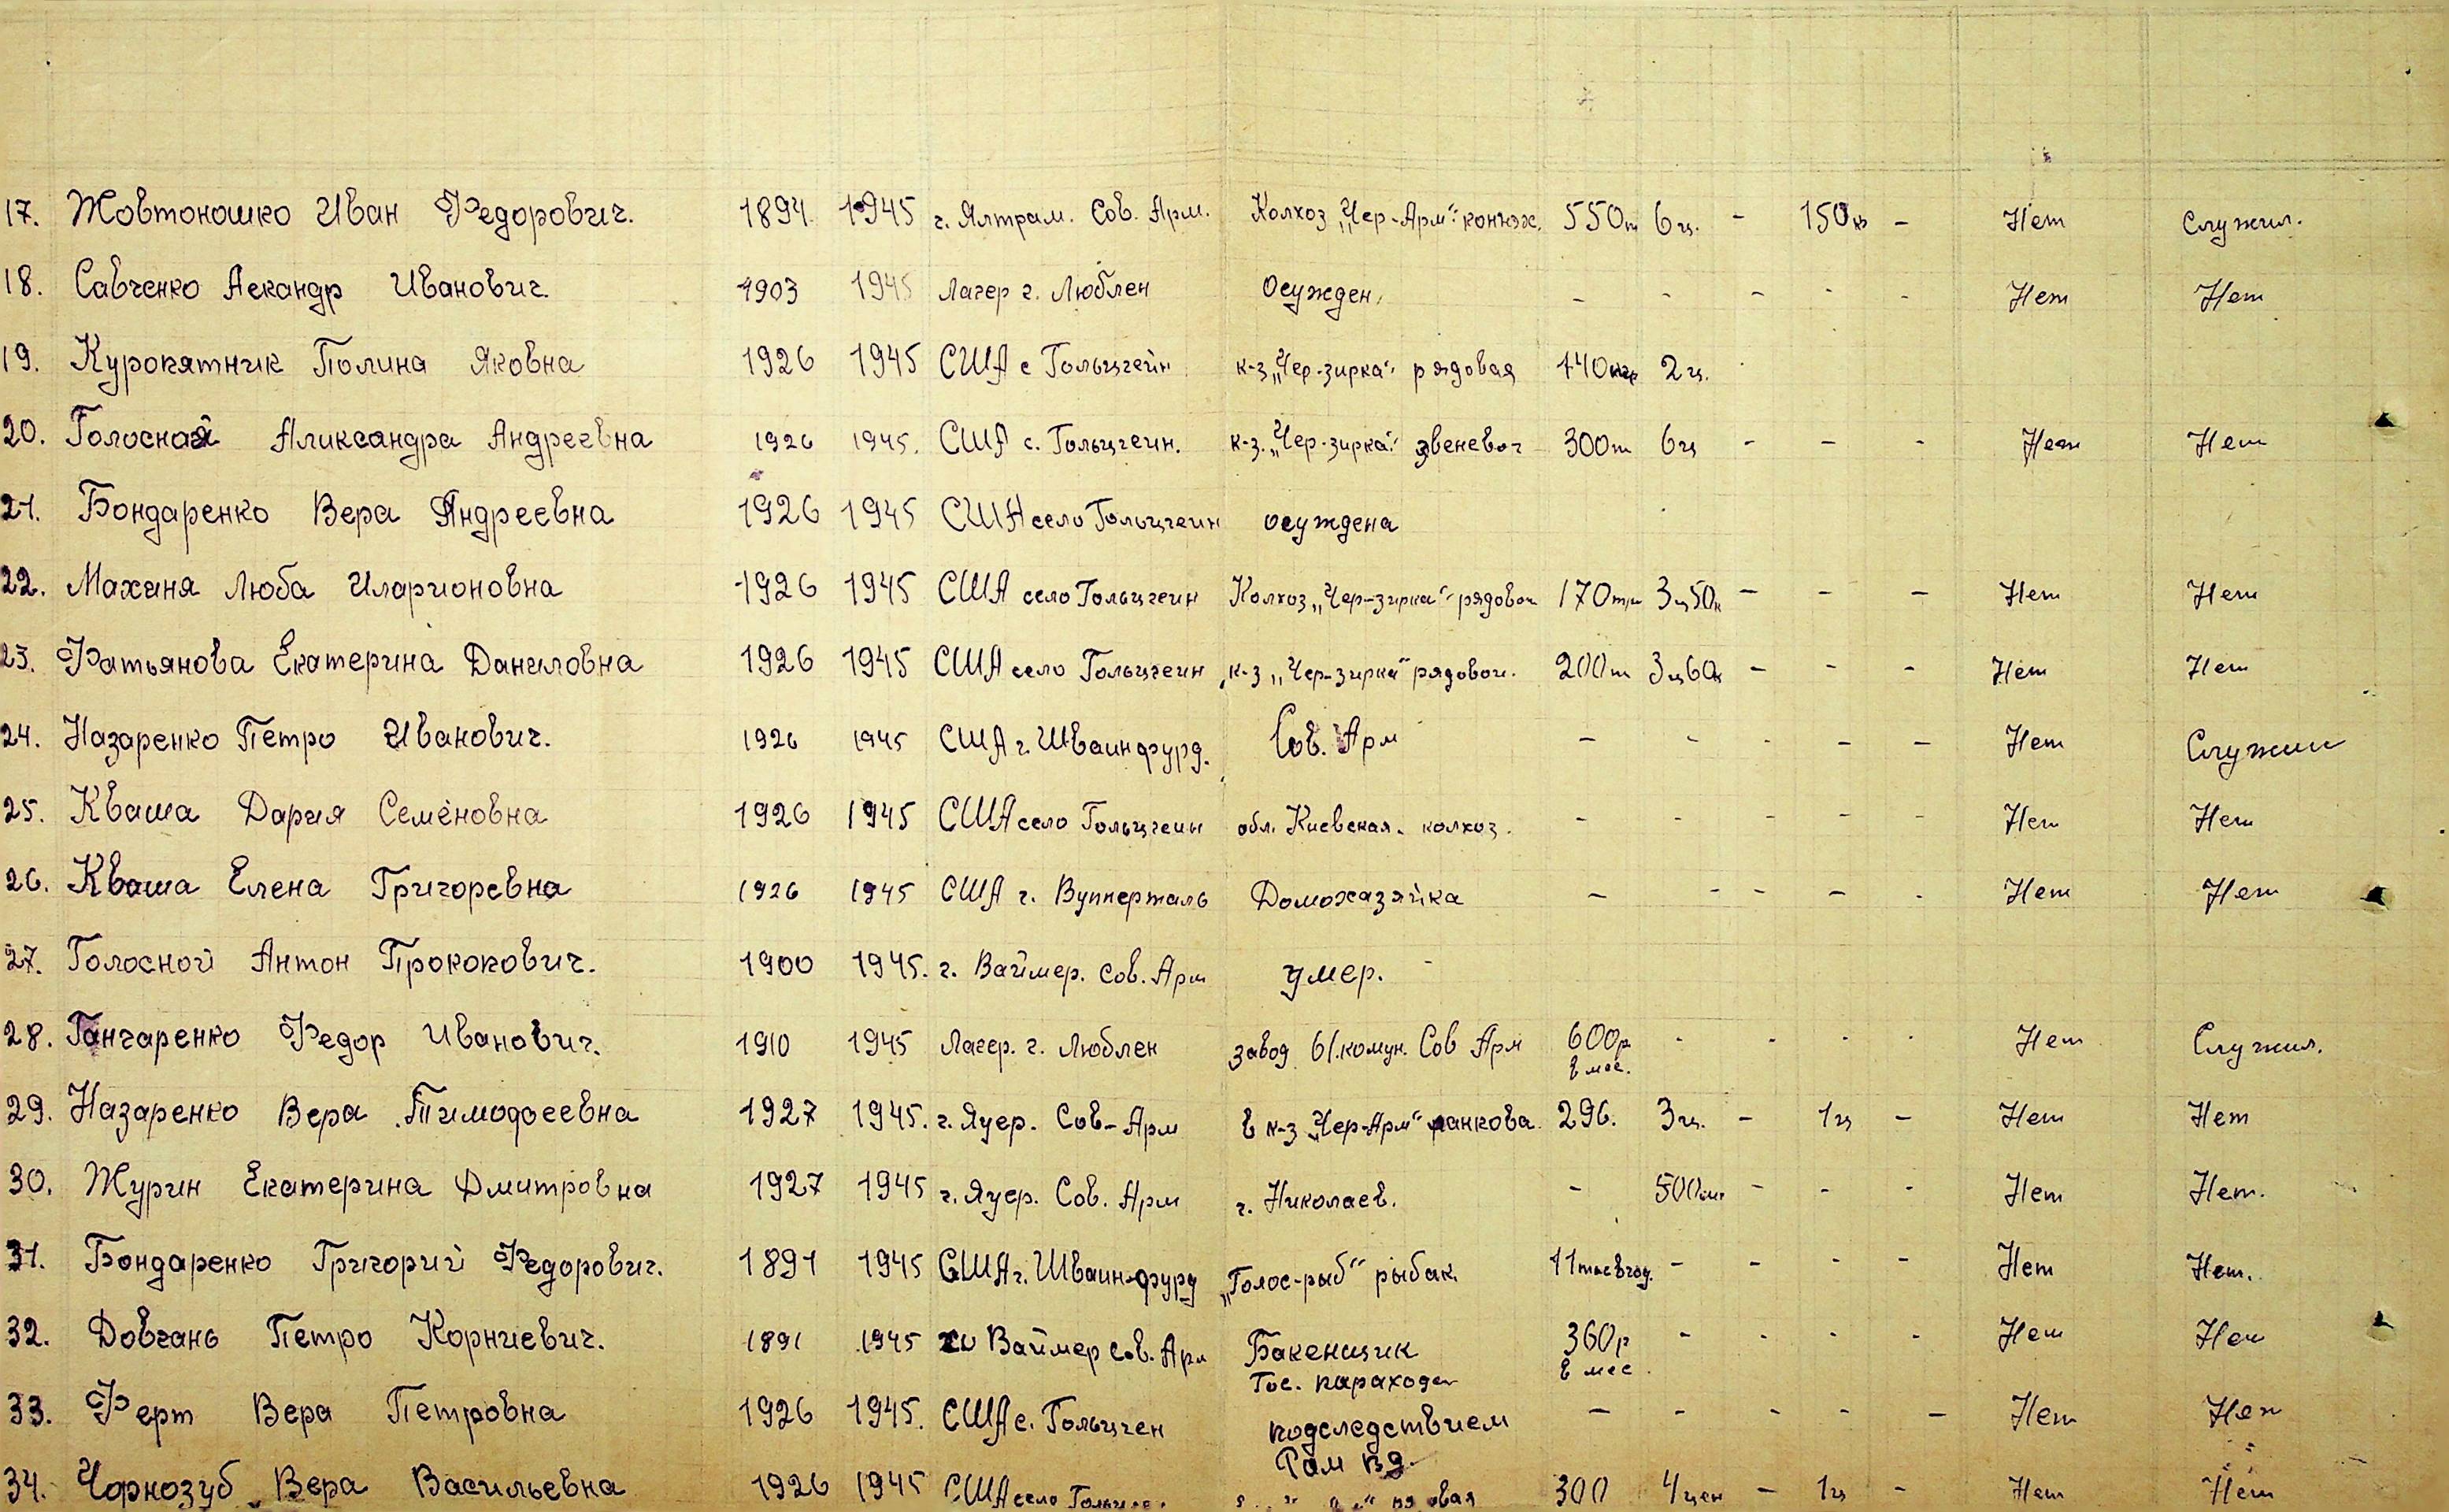 17. Жовтоношко Иван Федорович. 1894. 1945 г. Ялтрам. Сов. Арм. Колхоз „Чер-Арм“ конюх. 550т 6ц. - 150кг - Нет Служил.
18. Савченко Аександр Иванович. 1903 1945 Лагер г. Люблен Осужден. - - - - - Нет Нет
19. Куропятник Полина Яковна 1926 1945 США с Гольцгейн к-з „Чер-зирка“ рядовая 140 2ц.
20. Голосная Аликсандра Андреевна 1926 1945. США с. Гольцгеин. к-з. „Чер-зирка“ звеневой 300т 6ц - - - Нет Нет
21. Бондаренко Вера Андреевна 1926 1945 США село Гольцгеин осуждена
22. Махиня Люба Иларионовна 1926 1945 США село Гольцгеин Колхоз „Чер-зирка“ рядовои 170 3ц50к - - - Нет Нет
23. Фатьянова Екатерина Даниловна 1926 1945 США село Гольцгеин к-з „Чер-зирка“ рядовои. 200т 3ц60к - - - Нет Нет
24. Назаренко Петро Иванович. 1926 1945 США г. Шваинфурд. Сов. Арм - - - - - Нет Служил
25. Кваша Дария Семёновна 1926 1945 США село Гольцгеин обл. Киевская. колхоз. - - - - - Нет Нет
26. Кваша Елена Григоревна 1926 1945 США г. Вупперталь Домохазяйка - - - - - Нет Нет
27. Голосной Антон Прокопович. 1900 1945. г. Ваймер. Сов. Арм умер. -
28. Ганчаренко Федор Иванович. 1910 1945 Лагер. г. Люблен завод 61.комун. Сов Арм 600р - - - - Нет Служил.
в мес.
29. Назаренко Вера Тимофеевна 1927 1945. г. Яуер. Сов-Арм в к-з „Чер-Арм“ ланкова. 296. 3ц. - 1ц - Нет Нет
30. Журин Екатерина Дмитровна 1927 1945 г. Яуер. Сов. Арм г. Николаев. - 500 - - - Нет Нет.
31. Бондаренко Григорий Федорович. 1891 1945 США г. Шваинфурд „Голос-рыб“ рыбак. 11тысвгод. - - - - Нет Нет.
32. Довгань Петро Корниевич. 1891 1945 Ваймер Сов. Арм Бакенщик 360р - - - - Нет Нет
Гос. параходст в мес.
33. Ферт Вера Петровна 1926 1945. США с. Гольцген подследствием - - - - - Нет Нет
Рам вд.
34. Чорнозуб Вера Васильевна 1926 1945 США село 300 4цен - 1ц - Нет Нет